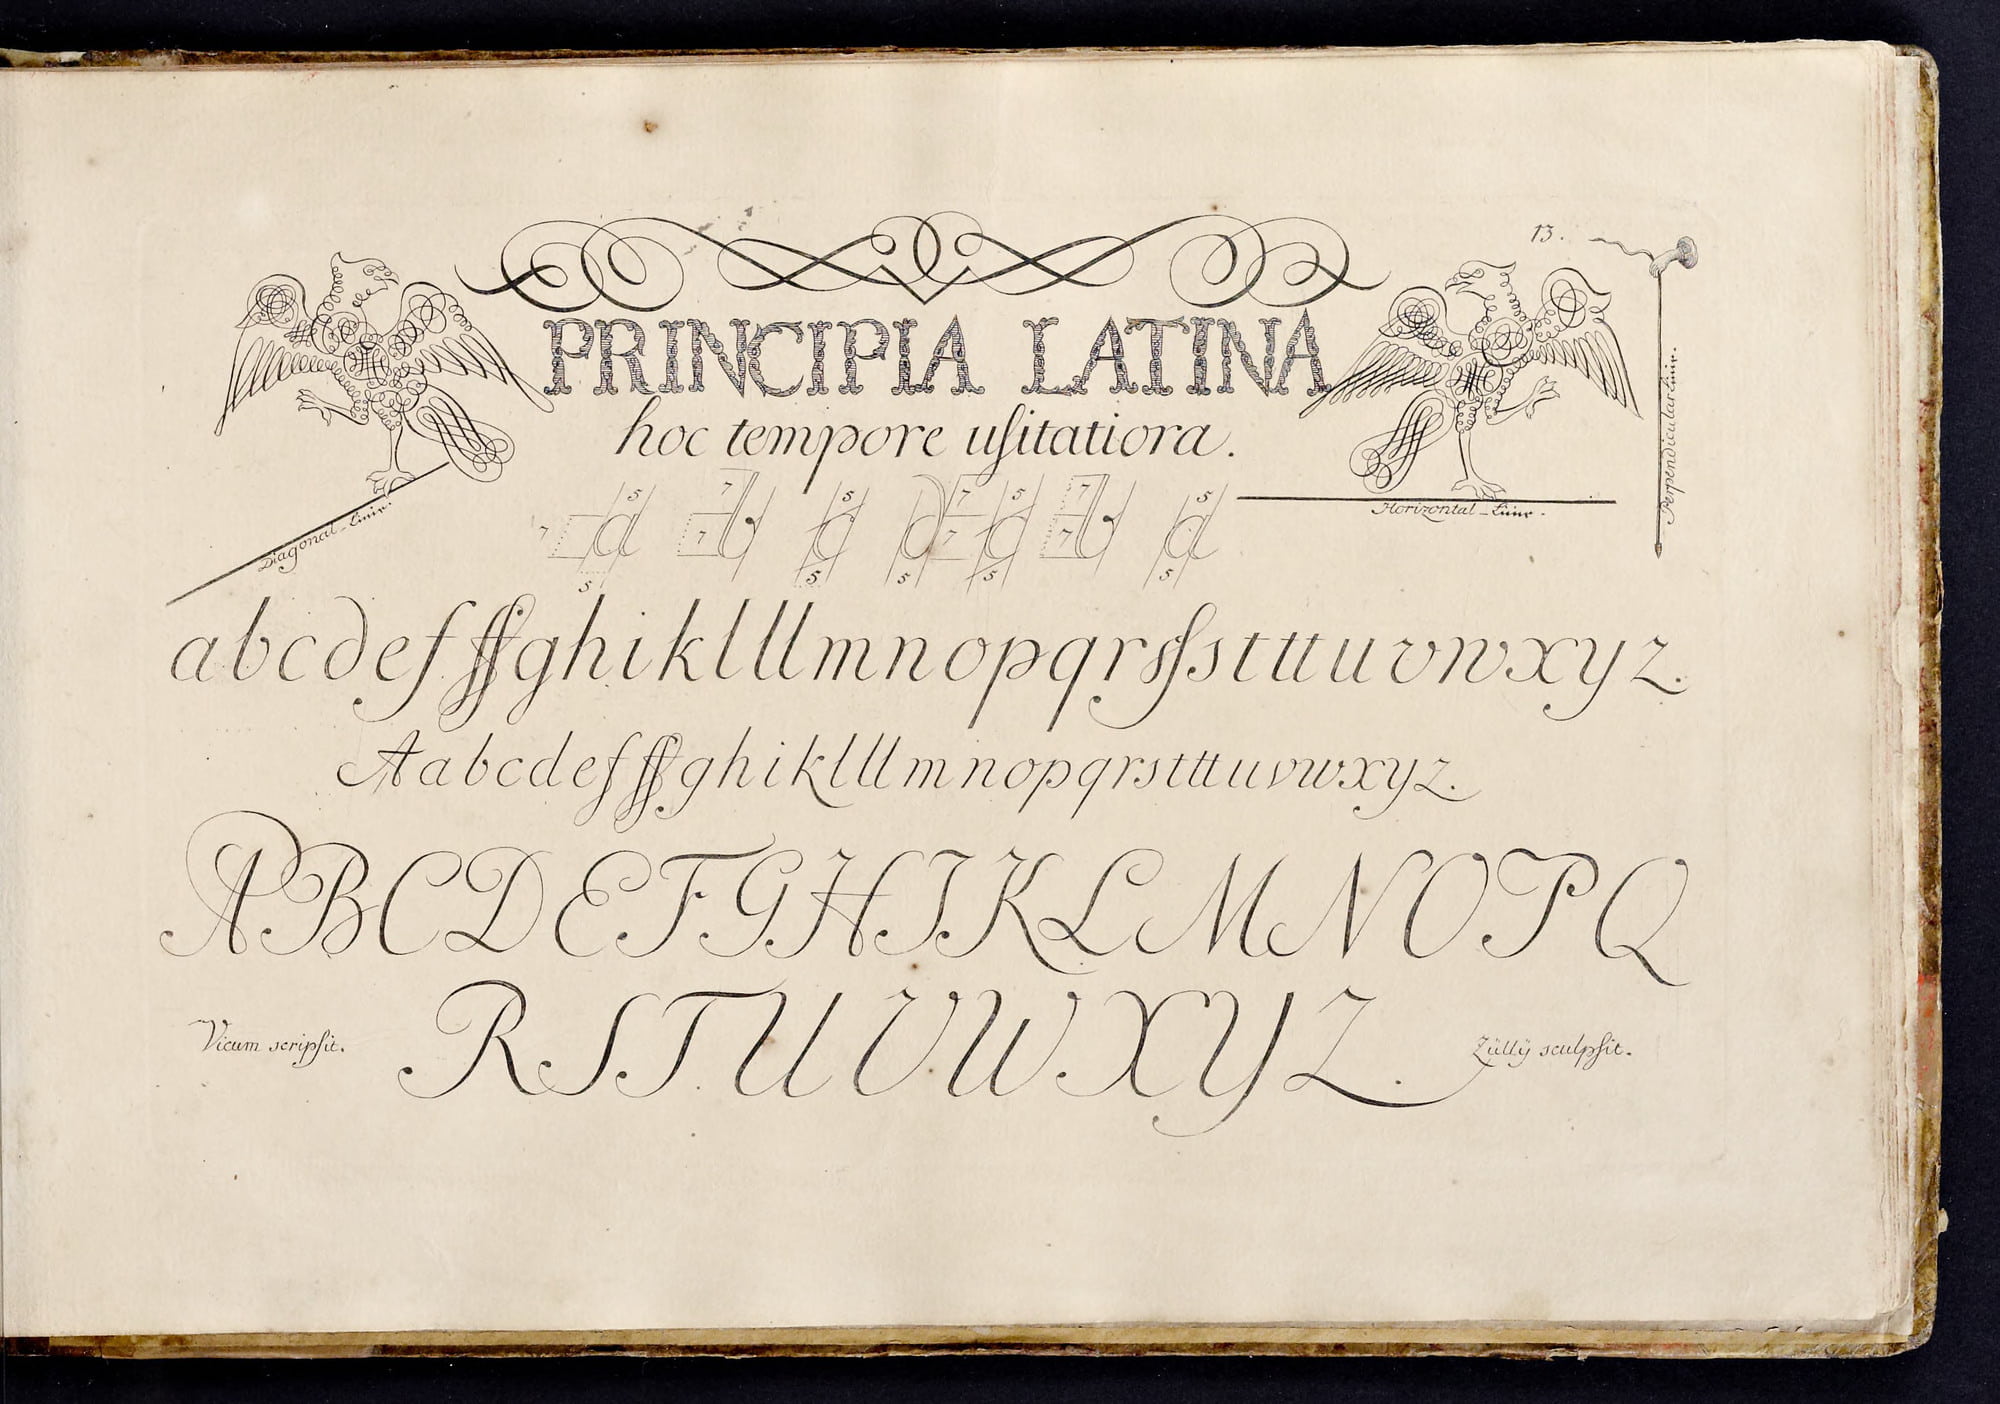 13.
PRINCIPIA LATINA
hoc tempore uſitatiora.
Diagonal-Linie.
Horizontal-Linie.
Perpendicular Linie.
7 5 5
7 7
5 5
5 7 7
5 5
7 7
5 5
a b c d e f ff g h i k l ll m n o p q r s ſs t tt u v w x y z.
A a b c d e f ff g h i k l ll m n o p q r s t tt u v w x y z.
A B C D E F G H I K L M N O P Q
R S T U V W X Y Z.
Vicum scripſit.
Züllÿ sculpſit.